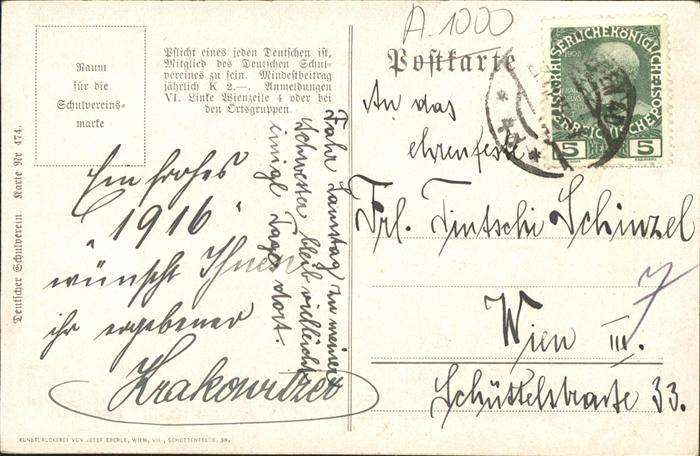 Raum
für die
Schulvereins-
marke
Pflicht eines jeden Deutschen ist,
Mitglied des Deutschen Schul-
vereines zu sein. Mindestbeitrag
jährlich K 2.—. Anmeldungen
VI. Linke Wienzeile 4 oder bei
den Ortsgruppen.
Deutscher Schulverein. Karte Nr 474.
Ein frohes
"1916"
wünscht Ihnen
ihr ergebener
Krakowitzer
Fahr Samstag zu meiner
Schwester bleib vielleicht
einige Tage dort.
A-1000
Postkarte
5 5
An das
ehrenfeste
Frl. Tintschi Schinzel
Wien III.
Schüttelstrasse 33.
7
KUNSTDRUCKEREI VON JOSEF EBERLE, WIEN, VII., SCHOTTENFELDG. 38.